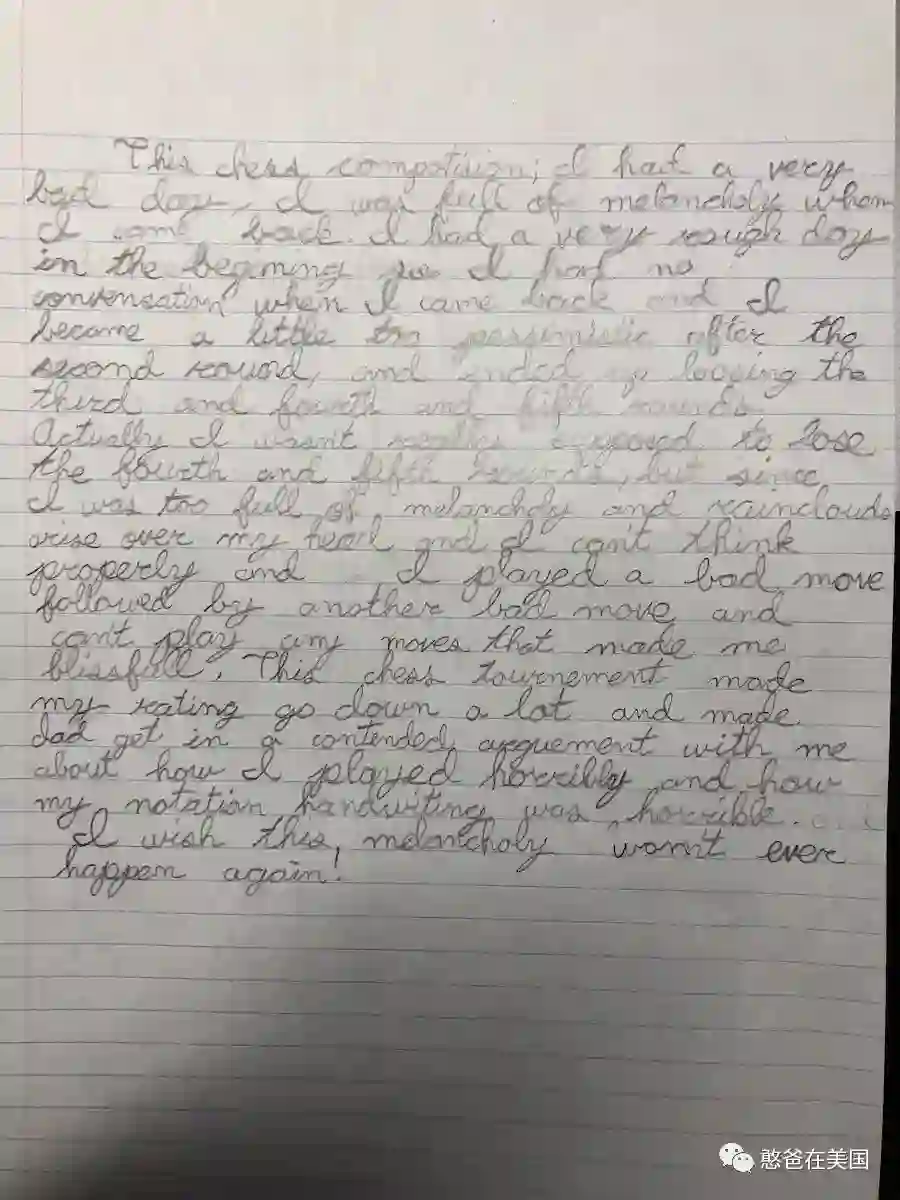 This chess compotision; I had a very
bad day, I was full of melancholy when
I came back. I had a very rough day
in the beginning I had no
convensation when I came back and I
became a little too pessimistic after the
second round, and ended up loosing the
third and fourth and fifth rounds.
Actually I wasn't really supposed to lose
the fourth and fifth rounds, but since
I was too full of melancholy and rainclouds
arise over my head and I can't think
properly and I played a bad move
followed by another bad move and
can't play any moves that made me
blissfull. This chess tournement made
my rating go down a lot and made
dad get in a contended arguement with me
about how I played horribly and how
my notation handwriting was horrible.
I wish this melancholy won't ever
happen again!
憨爸在美国